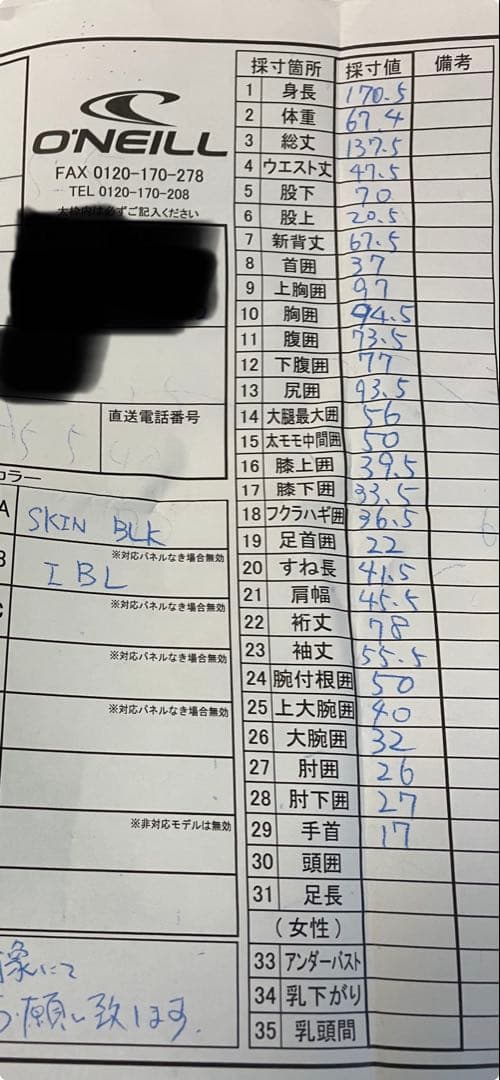 O'NEILL
FAX 0120-170-278
TEL 0120-170-208
太枠内は必ずご記入ください
直送電話番号
カラー
A SKIN BLK
※対応パネルなき場合無効
B I BL
※対応パネルなき場合無効
C
※対応パネルなき場合無効
※対応パネルなき場合無効
※非対応モデルは無効
像にて
お願い致します.
採寸箇所 採寸値 備考
1 身長 170.5
2 体重 67.4
3 総丈 137.5
4 ウエスト丈 47.5
5 股下 70
6 股上 20.5
7 新背丈 67.5
8 首囲 37
9 上胸囲 97
10 胸囲 94.5
11 腹囲 73.5
12 下腹囲 77
13 尻囲 93.5
14 大腿最大囲 56
15 太モモ中間囲 50
16 膝上囲 39.5
17 膝下囲 33.5
18 フクラハギ囲 36.5
19 足首囲 22
20 すね長 41.5
21 肩幅 45.5
22 裄丈 78
23 袖丈 55.5
24 腕付根囲 50
25 上大腕囲 40
26 大腕囲 32
27 肘囲 26
28 肘下囲 27
29 手首 17
30 頭囲
31 足長
(女性)
33 アンダーバスト
34 乳下がり
35 乳頭間